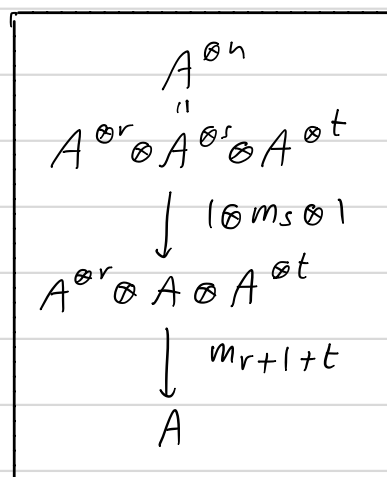 A^{⊗n}
=
A^{⊗r} ⊗ A^{⊗s} ⊗ A^{⊗t}
↓ 1⊗m_s⊗1
A^{⊗r} ⊗ A ⊗ A^{⊗t}
↓ m_{r+1+t}
A